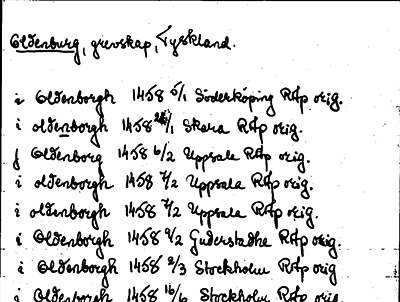 Oldenburg, grevskap, Tyskland.
i Oldenborgh 1458 5/1 Söderköping RAp orig.
i oldenborgh 1458 /1 Skara RAp orig.
f Oldenborg 1458 6/2 Uppsala RAp orig.
i oldenborgh 1458 7/2 Uppsala RAp orig.
i oldenborgh 1458 7/2 Uppsala RAp orig.
i Oldenborgh 1458 9/2 Guderstadhe RAp orig.
i Oldenborgh 1458 2/3 Stockholm RAp orig
i Oldenborgh 1458 16/6 Stockholm RAp orig